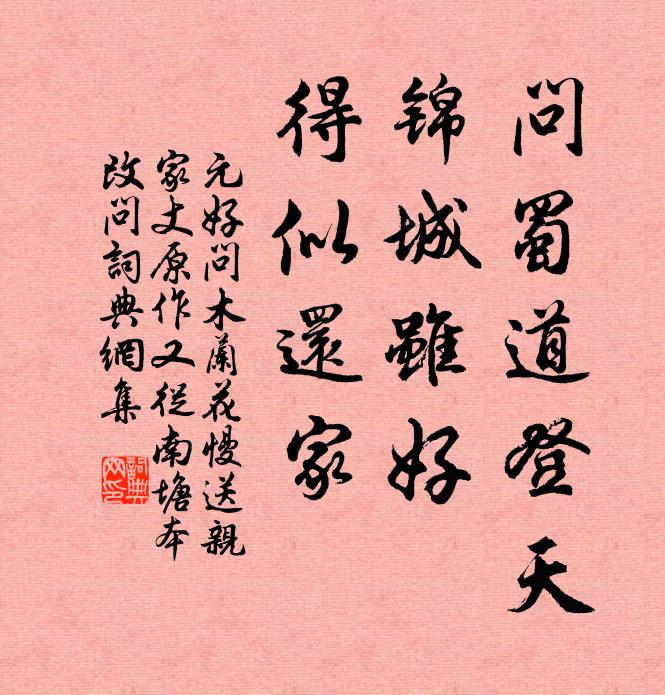 问蜀道登天
锦城雖好
得似還家
元好问木蘭花慢送親
家丈原作又從南塘本
改问詞典網集
詞典
网印